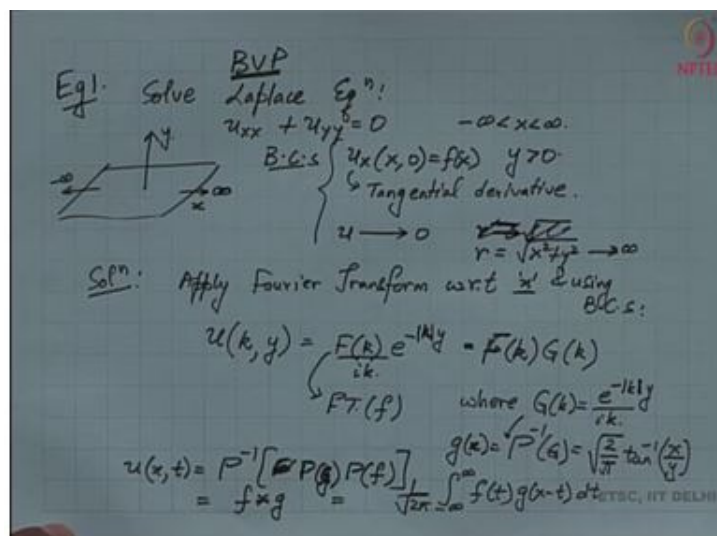 BVP
NPTEL
Eg1. Solve Laplace Eqⁿ:
u_xx + u_yy = 0 -∞ < x < ∞.
y
B.C.s { u_x(x, 0) = f(x) y > 0.
-∞ ∞
x
↳ Tangential derivative.
u → 0 r = √x²+y² → ∞
Solⁿ: Apply Fourier Transform w.r.t 'x' & using
B.C.s:
U(k, y) = F(k)/ik. e^{-|k|y} = F(k) G(k)
FT.(f) where G(k) = e^{-|k|y}/ik.
g(x) = F^{-1}(G) = √(2/π) tan^{-1}(x/y)
u(x, t) = F^{-1}[F(g) F(f)]
= f * g = 1/√2π ∫_{-∞}^{∞} f(t) g(x-t) dt
ETSC, IIT DELHI